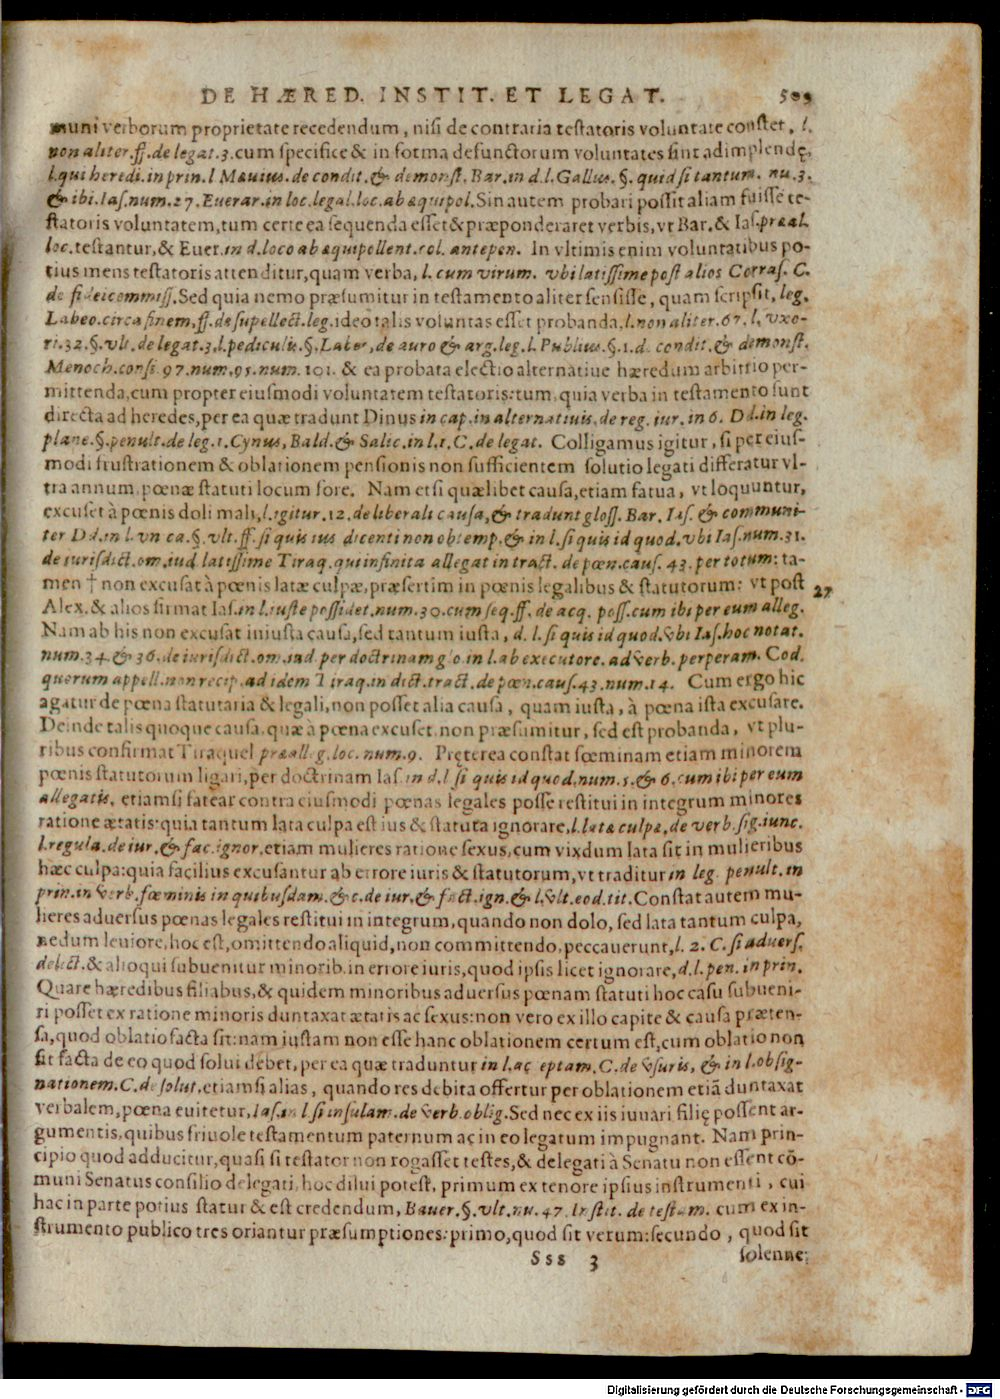 DE HÆRED. INSTIT. ET LEGAT. 509
muni verborum proprietate recedendum, nisi de contraria testatoris voluntate constet, l.
non aliter. ff. de legat. 3. cum specifice & in forma defunctorum voluntates sint adimplendę,
l. qui heredi. in prin. l Mæuius. de condit. & demonst. Bar. in d. l. Gallus. §. quid si tantum. nu. 3.
& ibi. Ias. num. 27. Euerar. in loc. legal. loc. ab æquipol. Sin autem probari possit aliam fuisse te-
statoris voluntatem, tum certe ea sequenda esset & præponderaret verbis, vt Bar. & Ias. præal.
loc. testantur, & Euer. in d. loco ab æquipollent. col. antepen. In vltimis enim voluntatibus po-
tius mens testatoris attenditur, quam verba, l. cum virum. vbi latissime post alios Corras. C.
de fideicommiss. Sed quia nemo præsumitur in testamento aliter sensisse, quam scripsit, leg.
Labeo. circa finem, ff. de supellect. leg. ideo talis voluntas esset probanda. l. non aliter. 67. l. vxo-
ri. 32. §. vlt. de legat. 3. l. pediculis. §. Labeo, de auro & arg. leg. l. Publius. §. 1. de condit. & demonst.
Menoch. consi. 97. num. 95. num. 101. & ea probata electio alternatiue hæredum arbitrio per-
mittenda, cum propter eiusmodi voluntatem testatoris: tum, quia verba in testamento sunt
directa ad heredes, per ea quæ tradunt Dinus in cap. in alternatiuis. de reg. iur. in 6. Dd. in leg.
plane. §. penult. de leg. 1. Cynus, Bald. & Salic. in l. 1. C. de legat. Colligamus igitur, si per eius-
modi frustrationem & oblationem pensionis non sufficientem solutio legati differatur vl-
tra annum, pœnæ statuti locum fore. Nam etsi quælibet causa, etiam fatua, vt loquuntur,
excuset à pœnis doli mali, l. igitur. 12. de liberali causa, & tradunt gloss. Bar. Ias. & communi-
ter Dd. in l. vn ca. §. vlt. ff. si quis ius dicenti non obtemp. & in l. si quis id quod. vbi Ias. num. 31.
de iurisdict. om. iud latissime Tiraq. qui infinita allegat in tract. de pœn. caus. 43. per totum: ta-
men † non excusat à pœnis latæ culpæ, præsertim in pœnis legalibus & statutorum: vt post 27
Alex. & alios firmat Ias. in l. iuste possidet. num. 30. cum seq. ff. de acq. poss. cum ibi per eum alleg.
Nam ab his non excusat iniusta causa, sed tantum iusta, d. l. si quis id quod. vbi Ias. hoc notat.
num. 34. & 36. de iurisdict. om. iud per doctrinam glo in l. ab executore. ad verb. perperam. Cod.
quorum appell. non recip. ad idem Tiraq. in dict. tract. de pœn. caus. 43. num. 14. Cum ergo hic
agatur de pœna statutaria & legali, non posset alia causa, quam iusta, à pœna ista excusare.
Deinde talis quoque causa, quæ à pœna excuset, non præsumitur, sed est probanda, vt plu-
ribus confirmat Tiraquel præalleg. loc. num. 9. Pręterea constat fœminam etiam minorem
pœnis statutorum ligari, per doctrinam Ias. in d. l si quis id quod. num. 5. & 6. cum ibi per eum
allegatis. etiamsi fatear contra eiusmodi pœnas legales posse restitui in integrum minores
ratione ætatis: quia tantum lata culpa est ius & statuta ignorare, l. lata culpa, de verb. sig. iunc.
l. regula. de iur. & fac. ignor. etiam mulieres ratione sexus, cum vixdum lata sit in mulieribus
hæc culpa: quia facilius excusantur ab errore iuris & statutorum, vt traditur in leg. penult. in
prin. in verb. fœminis in quibusdam. & c. de iur. & fact. ign. & l. vlt. eod. tit. Constat autem mu-
lieres aduersus pœnas legales restitui in integrum, quando non dolo, sed lata tantum culpa,
nedum leuiore, hoc est, omittendo aliquid, non committendo, peccauerunt, l. 2. C. si aduers.
delict. & alioqui subuenitur minorib. in errore iuris, quod ipsis licet ignorare, d. l. pen. in prin.
Quare hæredibus filiabus, & quidem minoribus aduersus pœnam statuti hoc casu subueni-
ri posset ex ratione minoris duntaxat ætatis ac sexus: non vero ex illo capite & causa præten-
sa, quod oblatio facta sit: nam iustam non esse hanc oblationem certum est, cum oblatio non
sit facta de eo quod solui debet, per ea quæ traduntur in l. acceptam. C. de vsuris, & in l. obsig-
nationem. C. de solut. etiamsi alias, quando res debita offertur per oblationem etiā duntaxat
verbalem, pœna euitetur, Ias. in l. si insulam. de verb. oblig. Sed nec ex iis iuuari filię possent ar-
gumentis, quibus friuole testamentum paternum ac in eo legatum impugnant. Nam prin-
cipio quod adducitur, quasi si testator non rogasset testes, & delegati à Senatu non essent cō-
muni Senatus consilio delegati, hoc dilui potest, primum ex tenore ipsius instrumenti, cui
hac in parte potius statur & est credendum, Bauer. §. vlt. nu. 47. Instit. de testam. cum ex in-
strumento publico tres oriantur præsumptiones: primo, quod sit verum: secundo, quod sit
Sss 3 solenne:
Digitalisierung gefördert durch die Deutsche Forschungsgemeinschaft - DFG